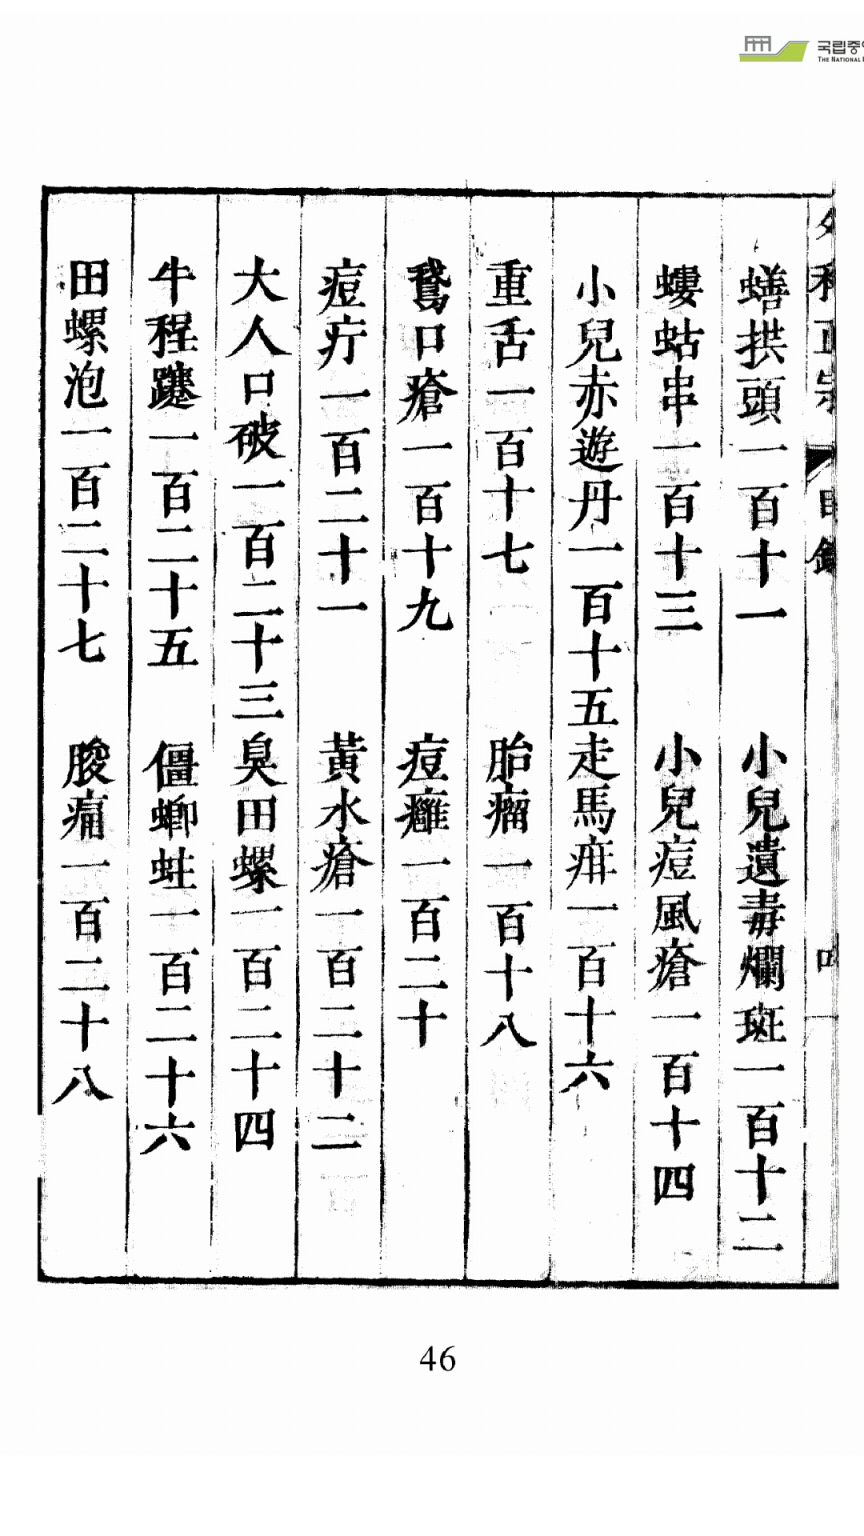 국립중
THE NATIONAL
外科正宗 目錄
蟮拱頭一百十一 小兒遺毒爛斑一百十二
螻蛄串一百十三 小兒痘風瘡一百十四
小兒赤遊丹一百十五走馬疳一百十六
重舌一百十七 胎瘤一百十八
鵞口瘡一百十九 痘癰一百二十
痘疔一百二十一 黃水瘡一百二十二
大人口破一百二十三臭田螺一百二十四
牛程一百二十五 僵螂蛀一百二十六
田螺泡一百二十七 痛一百二十八
46